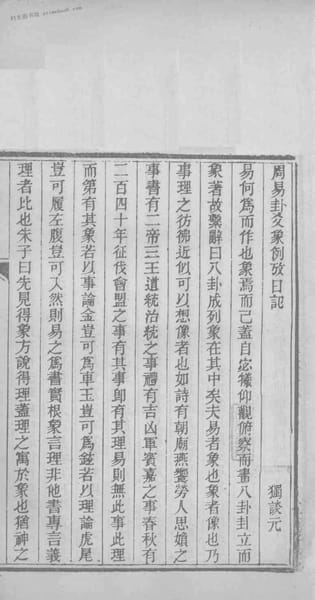 周易卦爻象例攷日記
獨談元
易何爲而作也象焉而已蓋自宓犧仰觀俯察而畫八卦卦立而
象著故繫辭曰八卦成列象在其中矣夫易者象也象者像也乃
事理之彷彿近似可以想像者也如詩有朝廟燕饗勞人思婦之
事書有二帝三王道統治統之事禮有吉凶軍賓嘉之事春秋有
二百四十年征伐會盟之事有其事卽有其理易則無此事此理
而第有其象若以事論金豈可爲車玉豈可爲鉉若以理論虎尾
豈可履左腹豈可入然則易之爲書實根象言理非他書專言義
理者比也朱子曰先見得象方說得理蓋理之寓於象也猶神之